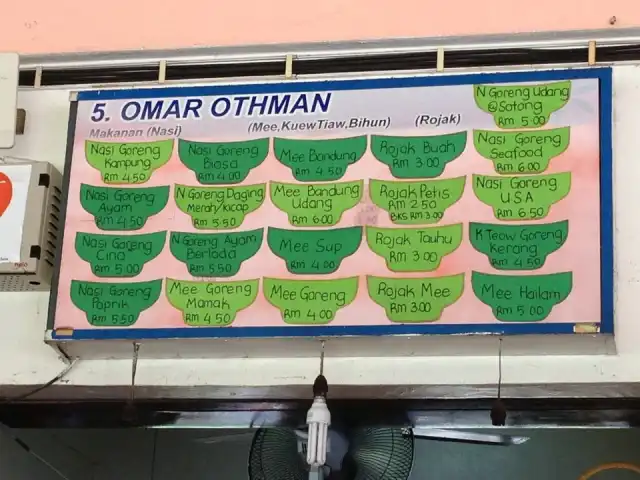 5. OMAR OTHMAN
Makanan (Nasi)
(Mee,KuewTiaw,Bihun)
(Rojak)
N Goreng Udang
@Sotong
RM 5.00
Nasi Goreng
Kampung
RM 4.50
Nasi Goreng
Biasa
RM 4.00
Mee Bandung
RM 4.50
Rojak Buah
RM 3.00
Nasi Goreng
Seafood
RM 6.00
Nasi Goreng
Ayam
RM 4.50
N Goreng Daging
Merah/kicap
RM 5.50
Mee Bandung
Udang
RM 6.00
Rojak Petis
RM 2.50
BKS RM 3.00
Nasi Goreng
USA
RM 6.50
Nasi Goreng
Cina
RM 5.00
N Goreng Ayam
Berlada
RM 5.50
Mee Sup
RM 4.00
Rojak Tauhu
RM 3.00
K Teow Goreng
Kerang
RM 4.50
Nasi Goreng
Paprik
RM 5.50
Mee Goreng
Mamak
RM 4.50
Mee Goreng
RM 4.00
Rojak Mee
RM 3.00
Mee Hailam
RM 5.00